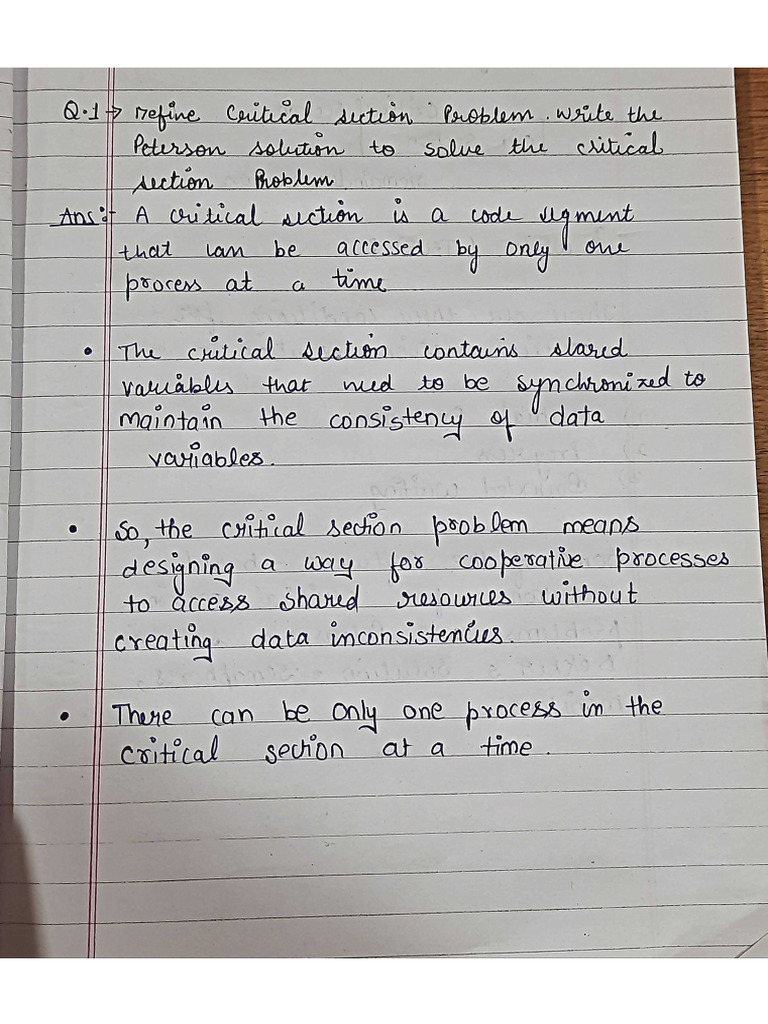 Q.1 → Define Critical section Problem. Write the
Peterson solution to solve the critical
section Problem
Ans:- A critical section is a code segment
that can be accessed by only one
process at a time
• The critical section contains slared
variables that need to be synchronized to
maintain the consistency of data
variables.
• So, the critical section problem means
designing a way for cooperative processes
to access shared resources without
creating data inconsistencies.
• There can be only one process in the
critical section at a time.